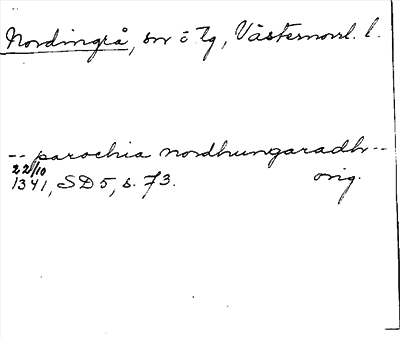 Nordingrå, sn i Tg, Västernorrl. l.
-- parochia nordhungaradh --
22/10
1341, SD 5, s. 73. orig.